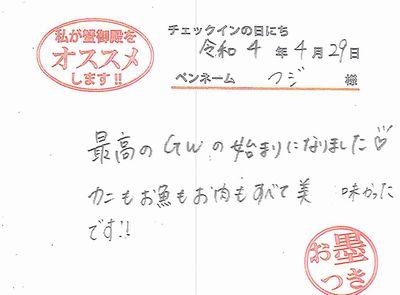 私が蟹御殿を
オススメ
します!!
チェックインの日にち
令和 4 年 4 月 29 日
ペンネーム フジ 様
最高のGWの始まりになりました♡
カニもお魚もお肉もすべて美 味かった
です!!
お墨
つき